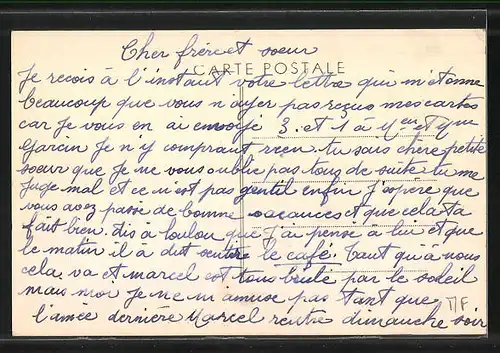 Cher frère et soeur
CARTE POSTALE
Je recois à l'instant votre lettre qui m'étonne
beaucoup que vous n'ayer pas reçus mes cartes
car Je vous en ai envoyé 3. et 1 à et
garcin Je n'y comprant reen. tu sais chère petite
soeur que Je ne vous oublie pas tous de suite tu me
Juge mal et ce n'est pas gentil enfin J'espère que
vous avez passe de bonne vacances et que cela ta
fait bien. dis à loulou que J'ai pensé à lui et que
le matin il à dut sentire le café. Tant qu'à nous
cela va et marcel est tous brulé par le soleil
mais moi Je ne m'amuse pas tant que
l'année dernière Marcel rentre dimanche soir